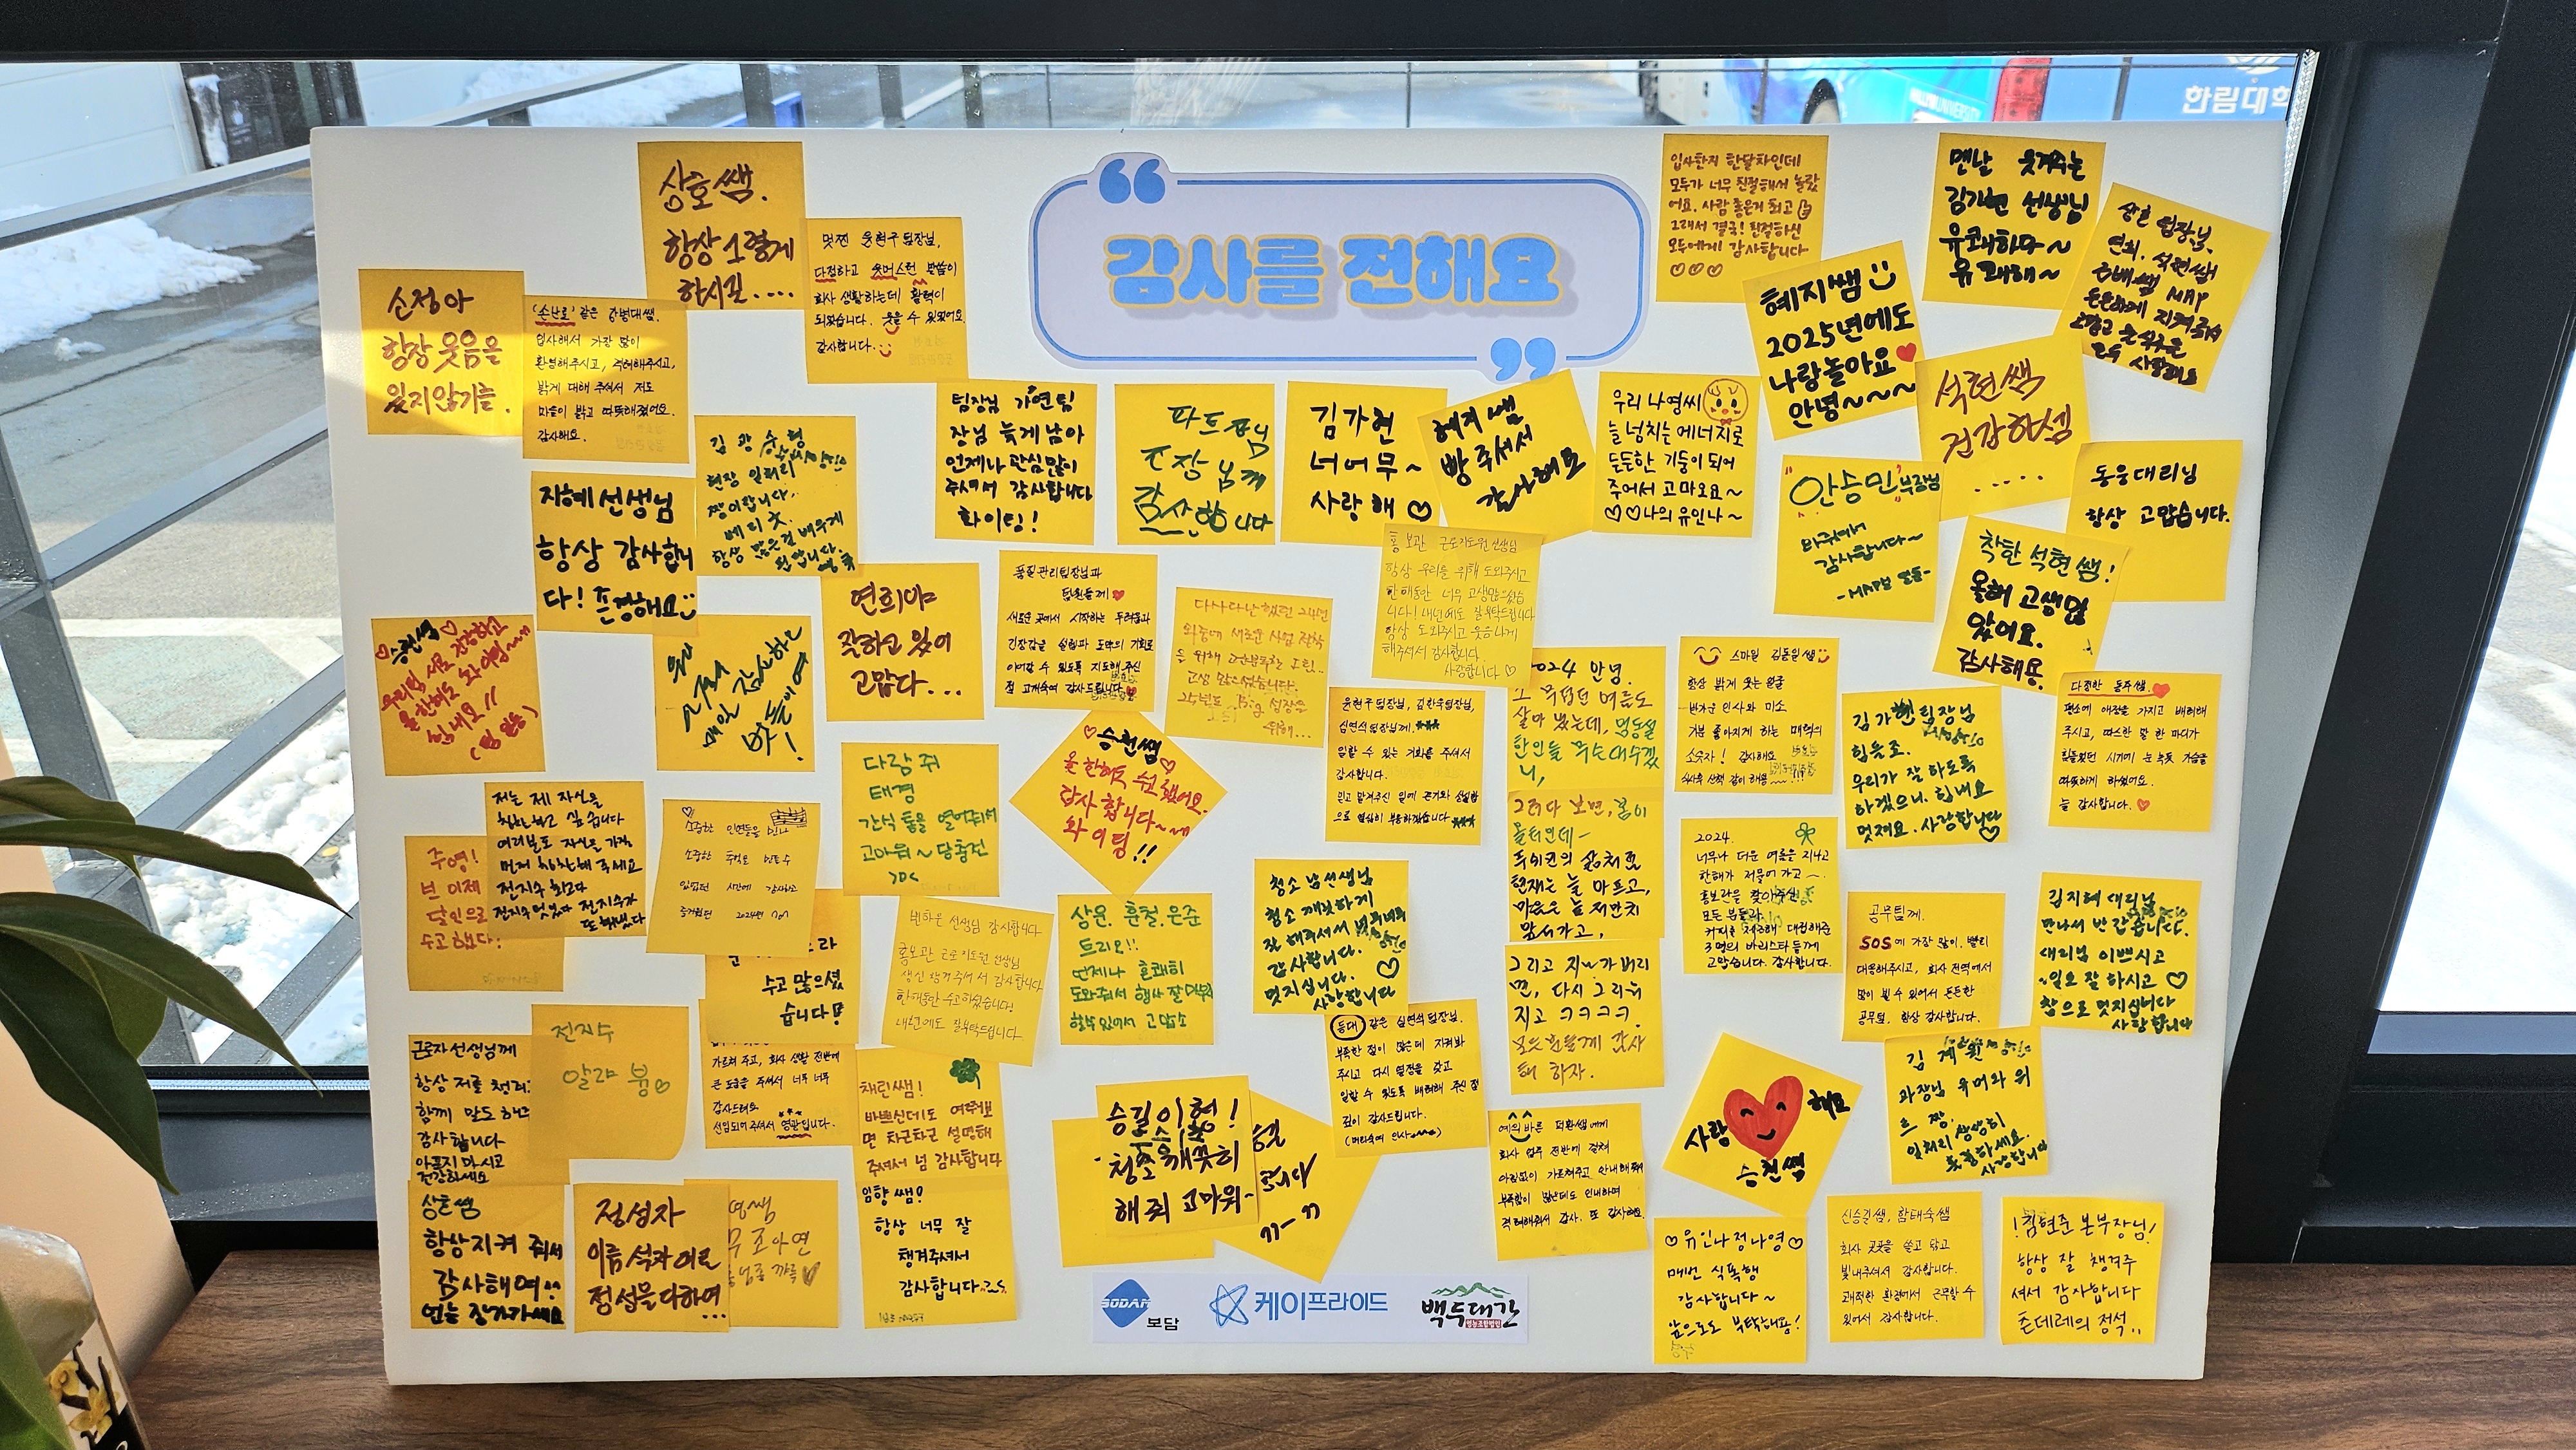 감사를 전해요
상호쌤.
항상 그렇게
하시길....
멋찐 윤현구 팀장님,
다정하고 유머스런 말씀이
회사 생활하는데 활력이
되었습니다. 웃을 수 있었어요.
감사합니다.
신정아
항상 웃음을
잃지않기를.
'손난로' 같은 강병대쌤.
입사해서 가장 많이
환영해주시고, 격려해주시고,
밝게 대해 주셔서 저도
마음이 밝고 따뜻해졌어요.
감사해요.
입사한지 한달차인데
모두가 너무 친절해서 놀랐
어요. 사람 좋은게 최고
그래서 결국! 친절하신
모두에게 감사합니다
♡♡♡
맨날 웃겨주는
김가현 선생님
유쾌하다~
유쾌해~
상호 팀장님,
연희, 석현쌤
든든하게 지켜줘서
모두 사랑해요
혜지쌤
2025년에도
나랑놀아요♥
안녕~~~~
석현쌤
건강하셈
.....
팀장님 가연팀
장님 늦게 남아
언제나 관심많이
주셔서 감사합니다
화이팅!
파트장님
감사합니다
김가현
너어무~
사랑해♡
혜지쌤
빵 주셔서
감사해요
우리 나영씨
늘 넘치는 에너지로
든든한 기둥이 되어
주어서 고마오요~
♡♡나의 유인나~
"안승민"부장님
와주셔서
감사합니다~
동웅대리님
항상 고맙습니다.
착한 석현쌤!
올해 고생많
았어요.
감사해용.
지혜선생님
항상 감사합니
다! 존경해요
현장 일처리
짱이합니다.
베리 굿.
항상 많은걸 배우게
됩니다.
연희야
잘하고 있어
고맙다...
품질관리팀장님과
팀원들께♥
새로운 곳에서 시작하는 두려움과
긴장감을 설렘과 도약의 기회로
이어갈 수 있도록 지도해 주신
점 고개숙여 감사드립니다.♥
다사다난했던 24년
와중에 새로운 사업 정착
을 위해
고생 많으셨습니다.
25년도 Big 성장을
위해...
홍보관 근로지도원 선생님
항상 우리를 위해 도와주시고
한해동안 너무 고생많으셨습
니다! 내년에도 잘부탁드립니다
항상 도와주시고 웃음나게
해주셔서 감사합니다.
사랑합니다♡
♡승천쌤♡
우리팀 서로 건강하고
올한해도 화이팅~~
힘내요!!
매일 감사하는
스마일 김동일쌤
항상 밝게 웃는 얼굴
반가운 인사와 미소
기분 좋아지게 하는 매력의
소유자! 감사해요
다정한 동주쌤.♥
평소에 애정을 가지고 배려해
주시고, 따스한 말 한 마디가
힘들었던 시기에 눈 녹듯 가슴을
따뜻하게 하였어요.
늘 감사합니다.♡
2024 안녕.
그 무덥던 여름도
살아 냈는데, 엄동설
한인들 무슨대수겠
니,
그러다 보면, 봄이
올터인데-
현재는 늘 아프고,
마음은 늘 저만치
앞서가고,
그리고 지나가버리
면, 다시 그리워
지고 ㅋㅋㅋㅋ.
모든분들께 감사
해 하자.
윤현구팀장님, 김한욱팀장님,
심연석팀장님께.
일할 수 있는 기회를 주셔서
감사합니다.
믿고 맡겨주신 일에 끈기와 성실함
으로 열심히 부응하겠습니다
김가현팀장님
힘을조.
우리가 잘 하도록
하겠으니. 힘내요
멋져요. 사랑합니다♡
♡승천쌤♡
올 한해도 수고했어요.
감사합니다~~
화이팅!!
다람쥐
태경
간식 통을 열어줘서
고마워~ 당충전
>.<
저는 제 자신을
칭찬하고 싶습니다
여러분도 자신을 가장
먼저 칭찬해 주세요
전지수 최고다
전지수 멋있다 전지수가
또 해냈다
주영!
브 이제
달인으로
수고했다!
소중한 인연들을 만나
소중한 추억도 만든 수
있었던 시간에 감사하고
즐거웠던 2024년
수고 많으셨
습니다!
변하은 선생님 감사합니다
홍보관 근로지도원 선생님
생신 챙겨주셔서 감사합니다
한해동안 수고하셨습니다!
내년에도 잘부탁드립니다.
상윤. 훈철. 은준
트리오!!
언제나 흔쾌히
도와줘서 행사 잘 마무리
할수있어서 고맙소
청소 남선생님
청소 깨끗하게
잘 해주셔서
감사합니다.
멋지십니다.
사랑합니다
2024.
너무나 더운 여름을 지나고
한해가 저물어 가고~.
홍보관을 찾아주신
모든 분들과
커피를 제공해 대접해준
3명의 바리스타 들께
고맙습니다. 감사합니다.
공무팀께.
SOS에 가장 많이, 빨리
대응해주시고, 회사 전역에서
많이 뵐 수 있어서 든든한
공무팀, 항상 감사합니다.
김지혜 대리님
만나서 반갑습니다.
대리님 이쁘시고
일도 잘 하시고♡
참으로 멋지십니다
사랑합니다
근로자선생님께
항상 저를 챙겨
함께 말도 하고
감사합니다
아프지 마시고
건강하세요
전지수
알랴븅♡
가르쳐 주고, 회사 생활 전반에
큰 도움을 주셔서 너무 너무
감사드려요
선임되어 주셔서 영광입니다.
채린쌤!
바쁘신데도 여쭤보
면 차근차근 설명해
주셔서 넘 감사합니다
등대 같은 심연석 팀장님.
부족한 점이 많은데 지켜봐
주시고 다시 열정을 갖고
일할 수 있도록 배려해 주신 점
깊이 감사드립니다.
(머리숙여 인사~~)
승길이형!
청소 깨끗히
해줘 고마워~
예의바른 덕환쌤에게
회사 업무 전반에 걸쳐
아낌없이 가르쳐주고 안내해줘서
부족함이 많은데도 인내하며
격려해줘서 감사. 또 감사해요.
사랑
해요
승천쌤
과장님 유머와 위
트 짱.
사랑합니다
상호쌤
항상지켜 줘서
감사해여!!
정성자
이름 석자처럼
정성을다하여
...
임향 쌤?
항상 너무 잘
챙겨주셔서
감사합니다
♡유인나정나영♡
매번 식폭행
감사합니다~
앞으로도 부탁해용!
신승길쌤, 함태숙쌤
회사 곳곳을 쓸고 닦고
빛내주셔서 감사합니다.
쾌적한 환경에서 근무할 수
있어서 감사합니다.
!김현준 본부장님!
항상 잘 챙겨주
셔서 감사합니다
츤데레의 정석..
SODAM
보담
케이프라이드
백두대간
영농조합법인
한림대학